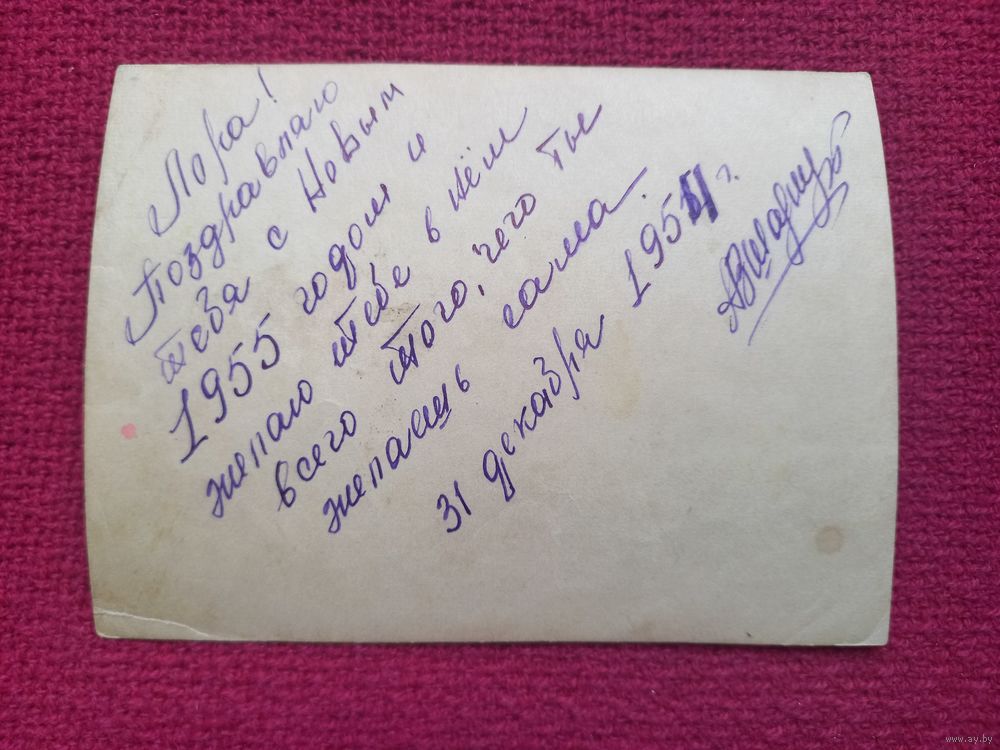 Лора!
Поздравляю
тебя с Новым
1955 годом и
желаю тебе в нём
всего того, чего ты
желаешь сама.
31 декабря 1954 г.
www.ay.by